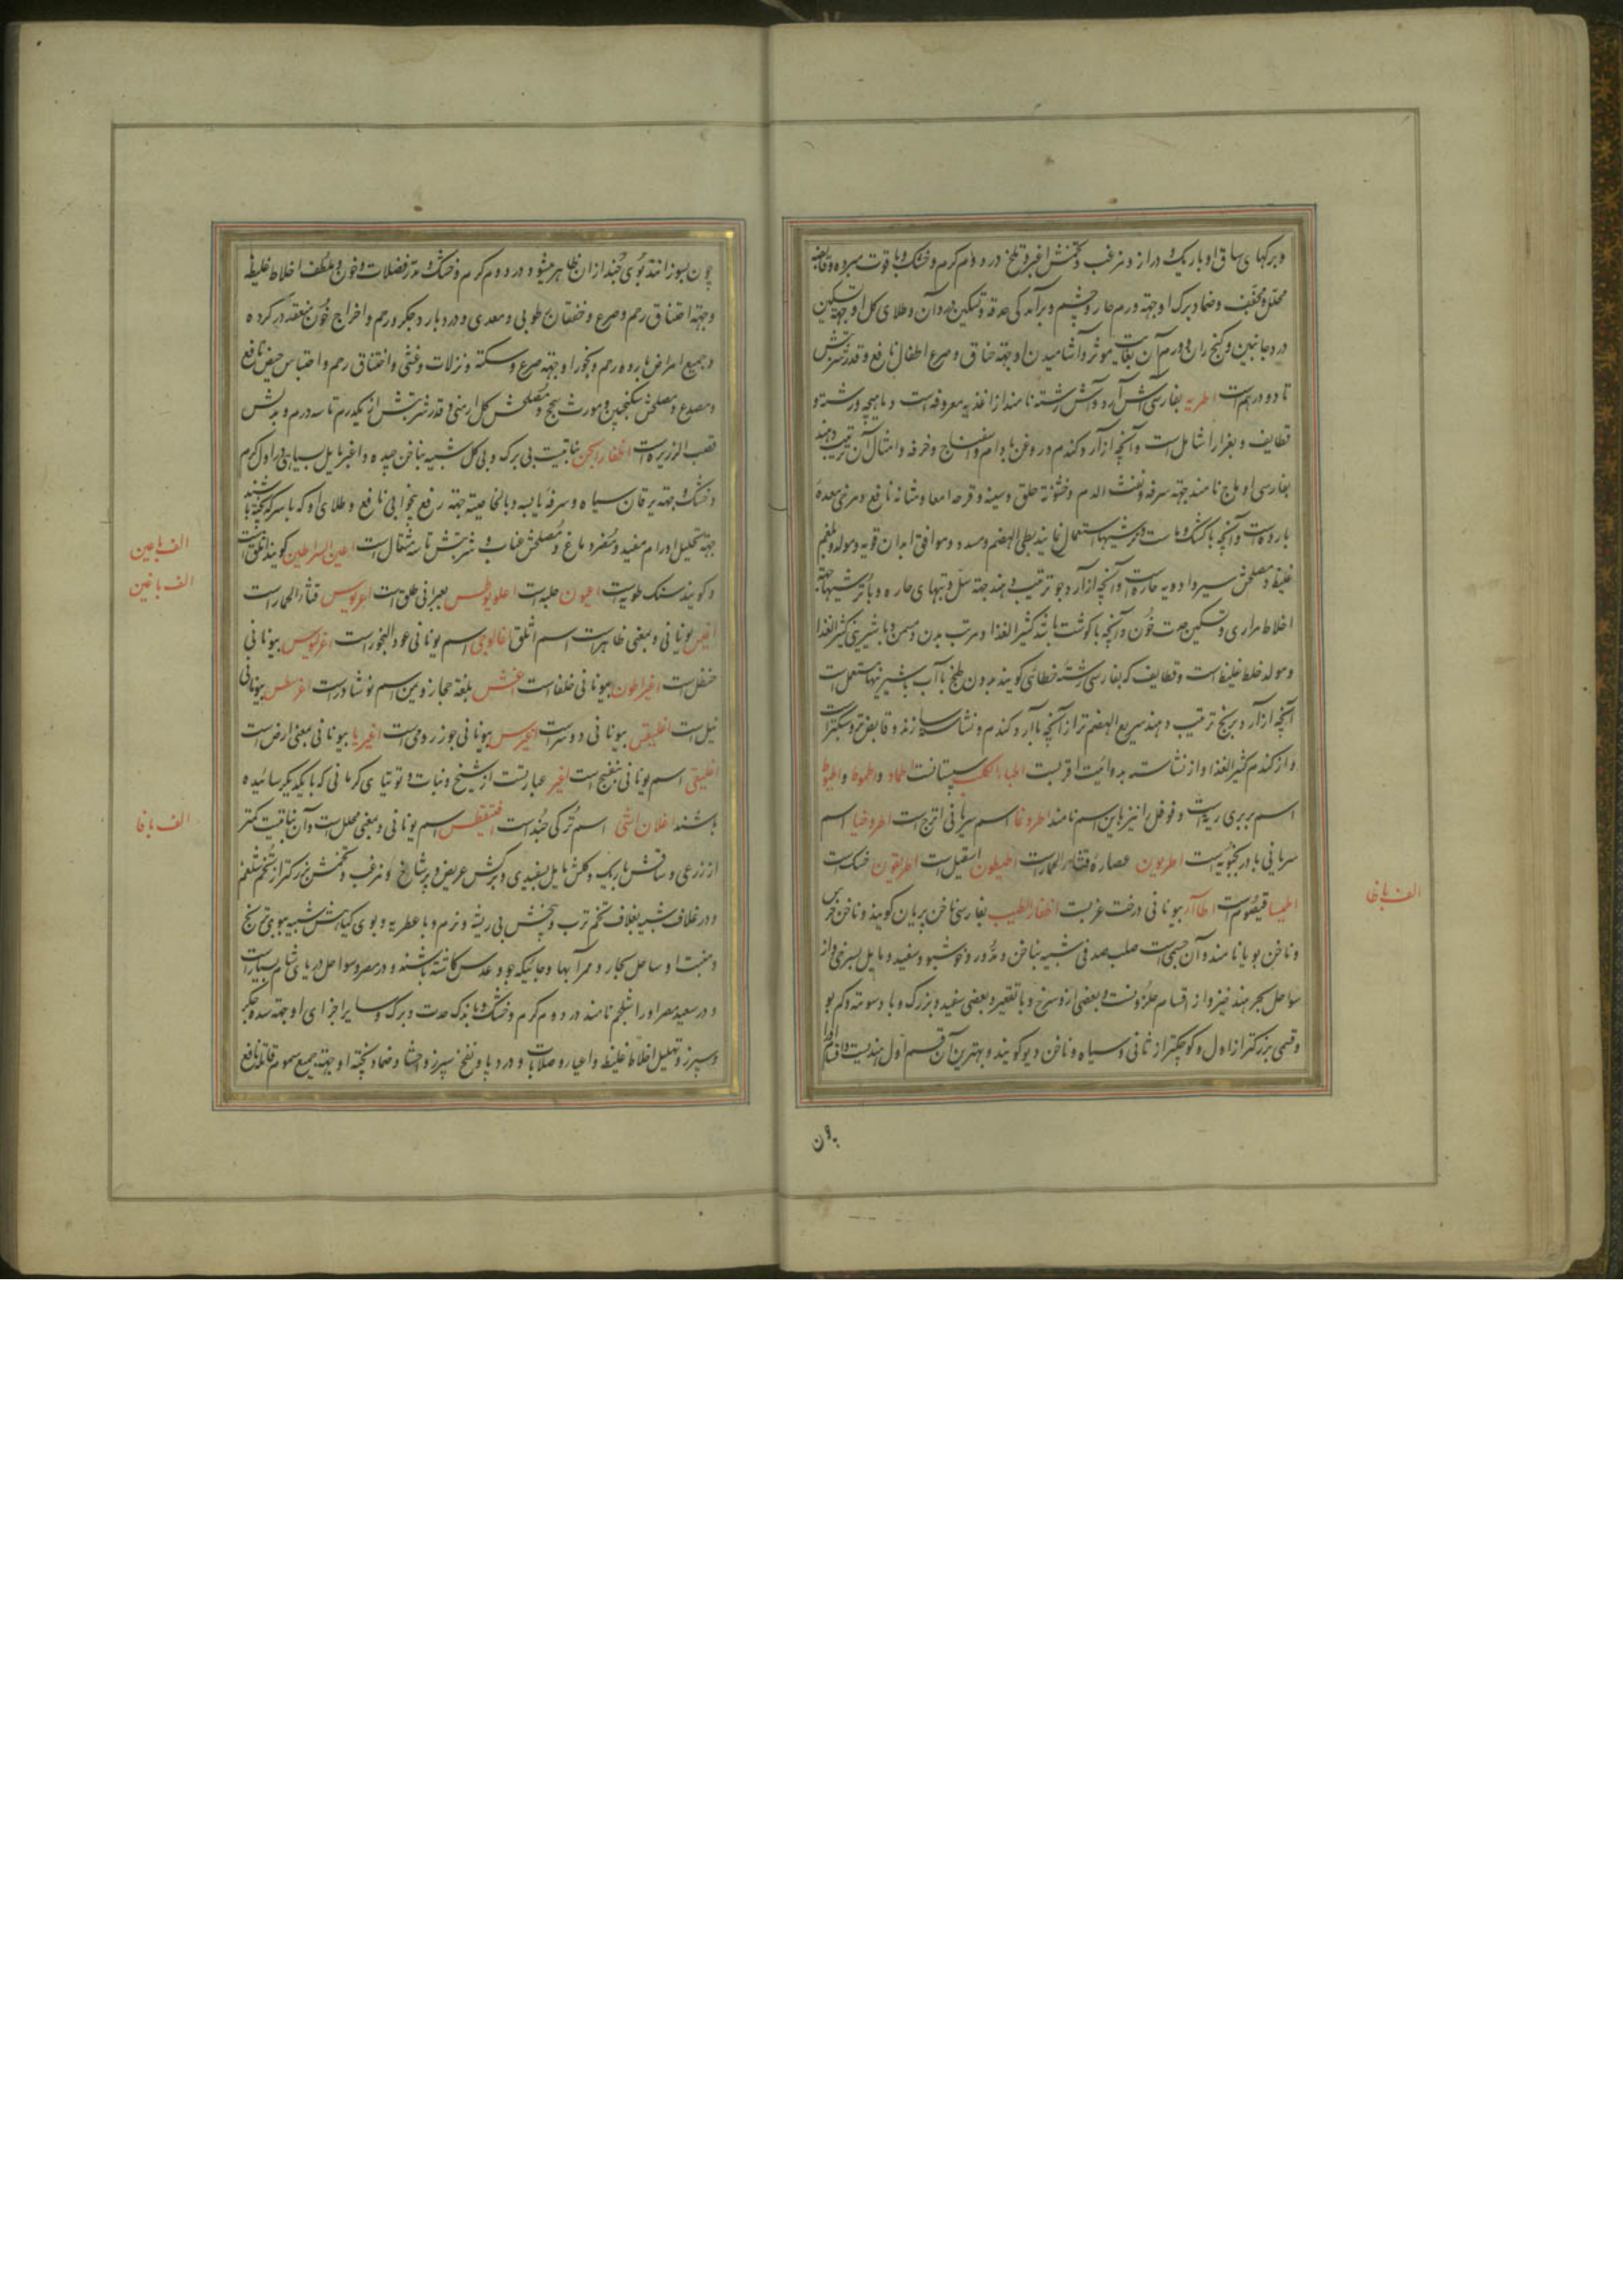 وبرکهای ساق او باریک و دراز و مزغب و تخمش اغبر و تلخ در دوم کرم و خشک و با قوت مبرده و قابضه
محلل و مجفف و ضماد برک او جهته ورم حار و چشم و برآمدکی حدقه و تسکین درد آن و طلای کل او جهته تسکین
درد جانبین و کنج ران و ورم آن بغایت موثر و آشامیدن او جهته خناق و صرع اطفال نافع و قدر شربتش
تا دو درهم است اطریه بفارسی آش آرد و آش رشته نامند از اغذیه معروفه است و ماهیچه و رشته و
قطایف و بغرا را شامل است و آنچه از آرد کندم در روغن بادام و اسفناج و خرفه و امثال آن ترتیب دهند
بفارسی اوماج نامند جهته سرفه و نفث الدم و خشونة حلق و سینه و قرحه امعا و مثانه نافع و مرخی معده
بارد است و آنچه با کشک و ماست و ترشیها استعمال نمایند بطی الهضم و مسدد و موافق ابدان قویه و مولد بلغم
غلیظ و مصلحش سیر و ادویه حاره است و آنچه از آرد جو ترتیب دهند جهته سل و تبهای حاره و با ترشیها جهته
اخلاط مراری و تسکین حدت خون و آنچه با کوشت باشد کثیر الغذا و مرتب بدن و مسمن و با شیرینی کثیر الغذا
و مولد خلط غلیظ است و قطایف که بفارسی رشته خطائی کویند بدون طبخ با آب با شیرینیها مستعمل است
آنچه از آرد برنج ترتیب دهند سریع الهضم تر از آنچه با آرد کندم و نشاسته سازند و قابض تر و سبکتر است
و از کندم کثیر الغذا و از نشاسته بدوائیت اقربست اطباء الکلب سپستانست اطماد و اطموط و اطیوط
اسم بربری ریته است و فوفل را نیز باین اسم نامند اطروغا اسم سریانی اترج است اطروخیا اسم
سریانی بادرنجبویه است اطربون عصاره قثاء الحمار است اطیطون اسقیل است اطریقون خسک است
اطیسا قیصوم است اطاآر بیونانی درخت غربست اظفار الطیب بفارسی ناخن پریان کویند و ناخن خرس
و ناخن بویا نامند و آن جسمی است صلب صدفی شبیه بناخن و مدور و خوشبو و سفید و مایل بسرخی و از
سواحل بحر هند خیزد و از اقسام حلزونست و بعضی از و سرخ و با تقعیر و بعضی سفید و بزرک و با دسومة و کم بو
و قسمی بزرکتر از اول و کوچکتر از ثانی و سیاه و ناخن دیو کویند و بهترین آن قسم اول هندیست و اقسام او را
چون
الف با ظا
چون بسوزانند بوی جند از ان ظاهر میشود و در دوم کرم و خشک و مدر فضلات و خون و ملطف اخلاط غلیظه
و جهته اختناق رحم و صرع و خفقان رطوبی و معدی و درد بارد جکر و رحم و اخراج خون منعقد در کرده
و جمیع امراض بارده رحم و بخور او جهته صرع و سکته و نزلات و غشی و اختناق رحم و احتباس حیض نافع
و مصدع و مصلحش سکنجبین و مورث سحج و مصلحش کل ارمنی و قدر شربتش از یکدرم تا سه درم و بدلش
قصب الذریره است اظفار الجن نباتیست بی برک و بی کل شبیه بناخن چیده و اغبر مایل بسیاهی در اول کرم
و خشک و جهته یرقان سیاه و سرفه یابسه و بالخاصیته جهته رفع بیخوابی نافع و طلای او که با سرکه پخته باشند
جهته تحلیل اورام مفید و مضر دماغ و مصلحش عناب و شربتش تا سه مثقال است اعین السراطین کویند اثلق است
و کویند سنک طویه است اعیون حلبه است اعلویوطس بعبرانی علق است اعرنوس قثاء الحمار است
اغیس یونانی و بمعنی ظاهر است اسم اثلق اغالوجی اسم یونانی عود البخور است اغرنیوس بیونانی
حنظل است اغیراطون بیونانی خلفا است اغش بلغة حجاز و یمن اسم نوشادر است اغرسطس بیونانی
نیل است اغلیقی بیونانی دوسر است اغیرس بیونانی جوز رومی است اغیریا بیونانی بمعنی ارض است
اغلیقی اسم یونانی بنفسج است اغبر عبارتست از شنج و نبات و توتیای کرمانی که با یکدیکر سائیده
باشند اغلان اشی اسم ترکی جند است افتیقطس اسم یونانی و بمعنی محلل است و آن نباتیست کمتر
از زرعی و ساقش باریک و کلش مایل بسفیدی و برکش عریض و پرشاخ و مزغب و تخمش بزرکتر از تخم شلغم
و در غلاف شبیه بغلاف تخم ترب و بیخش بی ریشه و نرم و با عطریه و بوی کیاهش شبیه ببوی ترنج
و منبت او ساحل بحار و ممر آبها و جائیکه جو و عدس کاشته باشند و در مصر و سواحل دریای شام بسیار است
و در سعید مصر او را شلجم نامند در دوم کرم و خشک و با اندک حدت و برک و سایر اجزای او جهته سده جکر
و سپرز و تحلیل اخلاط غلیظ و اعیا و صلابات و درد پا و نفخ سپرز و احشا و ضماد پخته او جهته جمیع سموم قاتله نافع
الف با عین
الف با غین
الف با فا